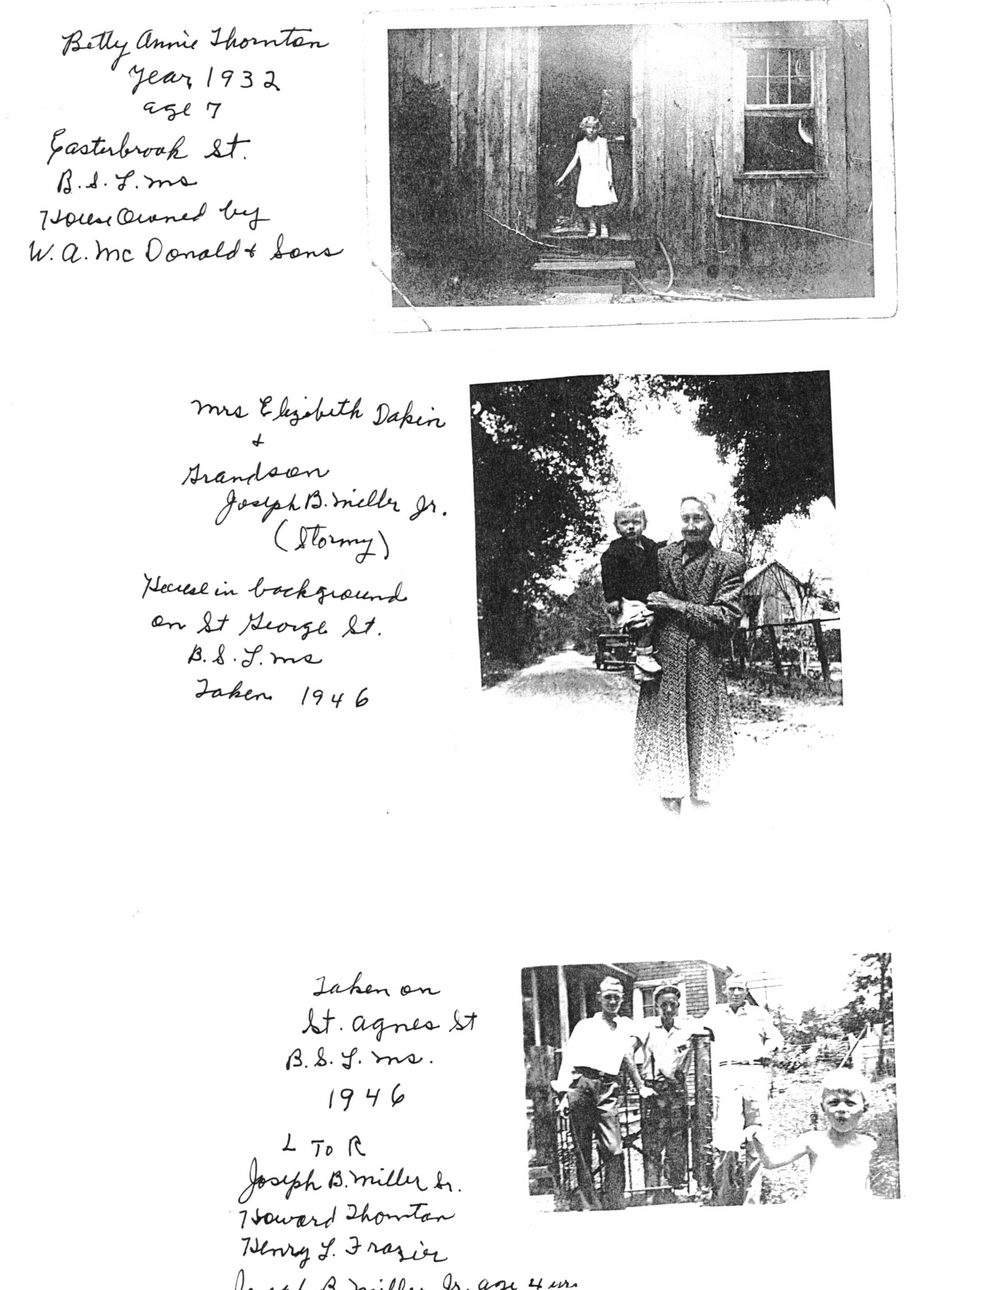 Betty Annie Thornton
Year 1932
age 7
Easterbrook St.
B.S.L. ms
House Owned by
W.A. Mc Donald & Sons
Mrs Elizabeth Dakin
&
Grandson
Joseph B. Miller Jr.
(Stormy)
House in background
on St George St.
B.S.L. ms
Taken 1946
Taken on
St. Agnes St
B.S.L. ms.
1946
L To R
Joseph B. Miller Sr.
Howard Thornton
Henry L. Frazier
Joseph B. Miller Jr. age 4 yrs